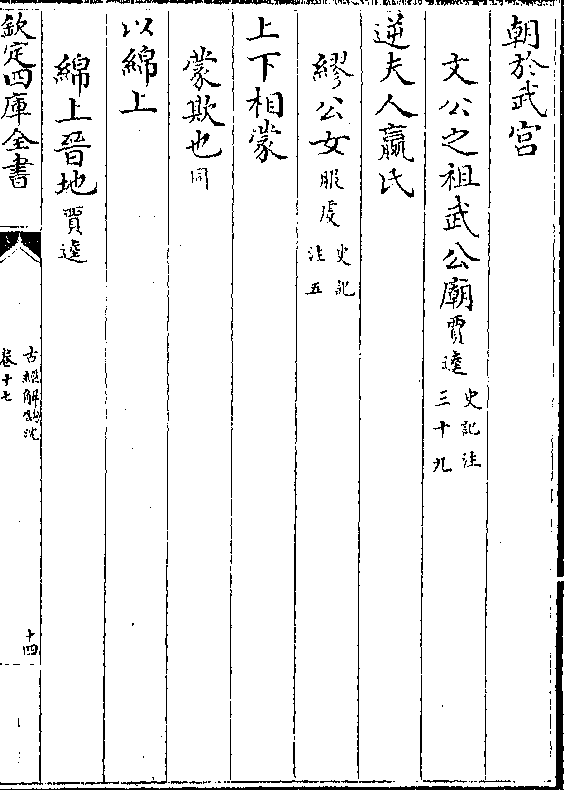 朝於武宮
文公之祖武公廟賈逵史記注三十九
逆夫人嬴氏
繆公女服虔史記注五
上下相蒙
蒙欺也同
以綿上
綿上晉地賈逵
欽定四庫全書
古經解鈎沈
卷十七
十四